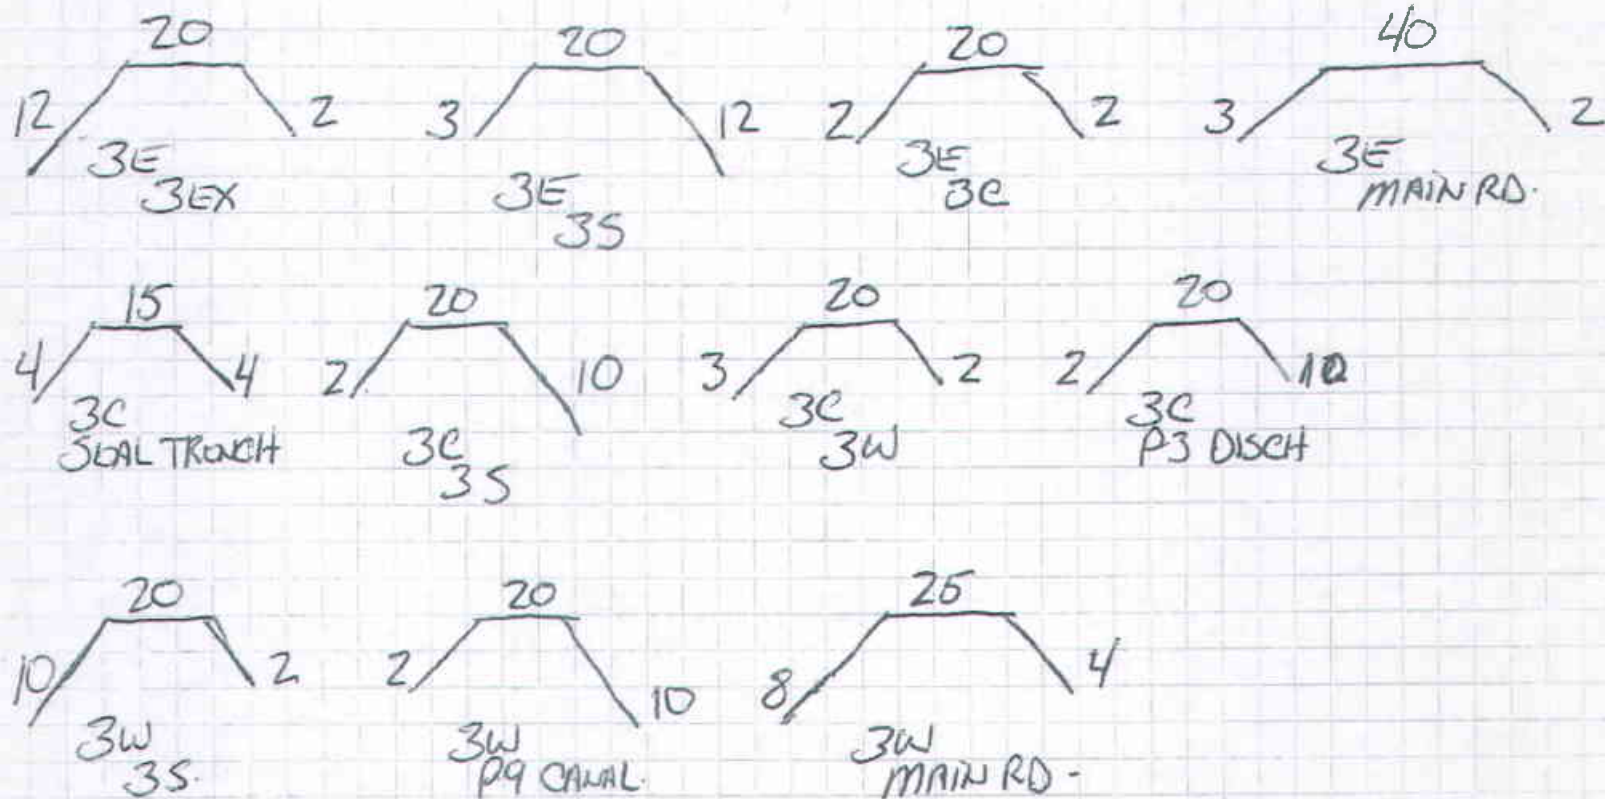 20
12 2
3E
3EX
20
3 12
3E
3S
20
2 2
3E
3C
40
3 2
3E
MAIN RD.
15
4 4
3C
SEAL TRENCH
20
2 10
3C
3S
20
3 2
3C
3W
20
2 10
3C
P3 DISCH
20
10 2
3W
3S.
20
2 10
3W
P9 CANAL.
25
8 4
3W
MAIN RD -